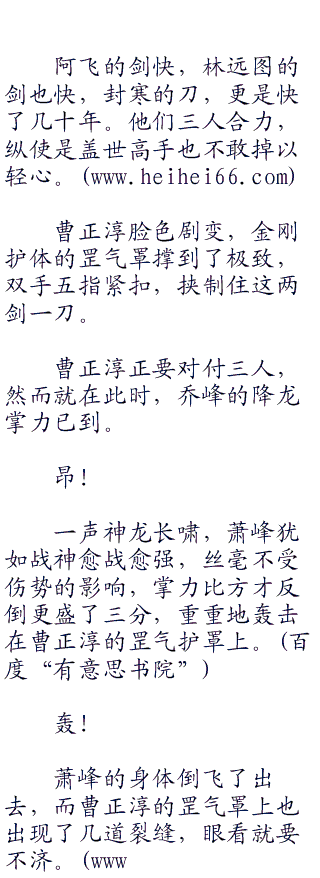 阿飞的剑快，林远图的
剑也快，封寒的刀，更是快
了几十年。他们三人合力，
纵使是盖世高手也不敢掉以
轻心。(www.heihei66.com)
曹正淳脸色剧变，金刚
护体的罡气罩撑到了极致，
双手五指紧扣，抉制住这两
剑一刀。
曹正淳正要对付三人，
然而就在此时，乔峰的降龙
掌力已到。
昂！
一声神龙长啸，萧峰犹
如战神愈战愈强，丝毫不受
伤势的影响，掌力比方才反
倒更盛了三分，重重地轰击
在曹正淳的罡气护罩上。(百
度“有意思书院”)
轰！
萧峰的身体倒飞了出
去，而曹正淳的罡气罩上也
出现了几道裂缝，眼看就要
不济。(www